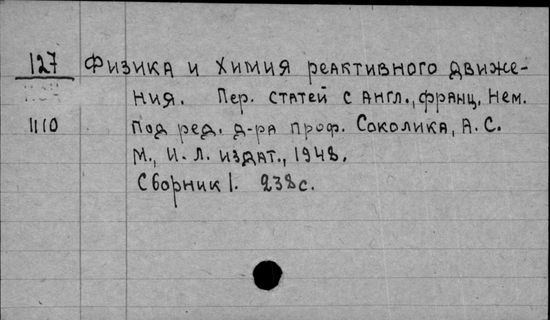 127 Физика и химия реактивного движе-
ния. Пер. статей с англ., франц. нем.
1110 Под ред. д-ра проф. Соколика, А. С.
М., И. Л. издат., 1948.
Сборник 1. 238 с.